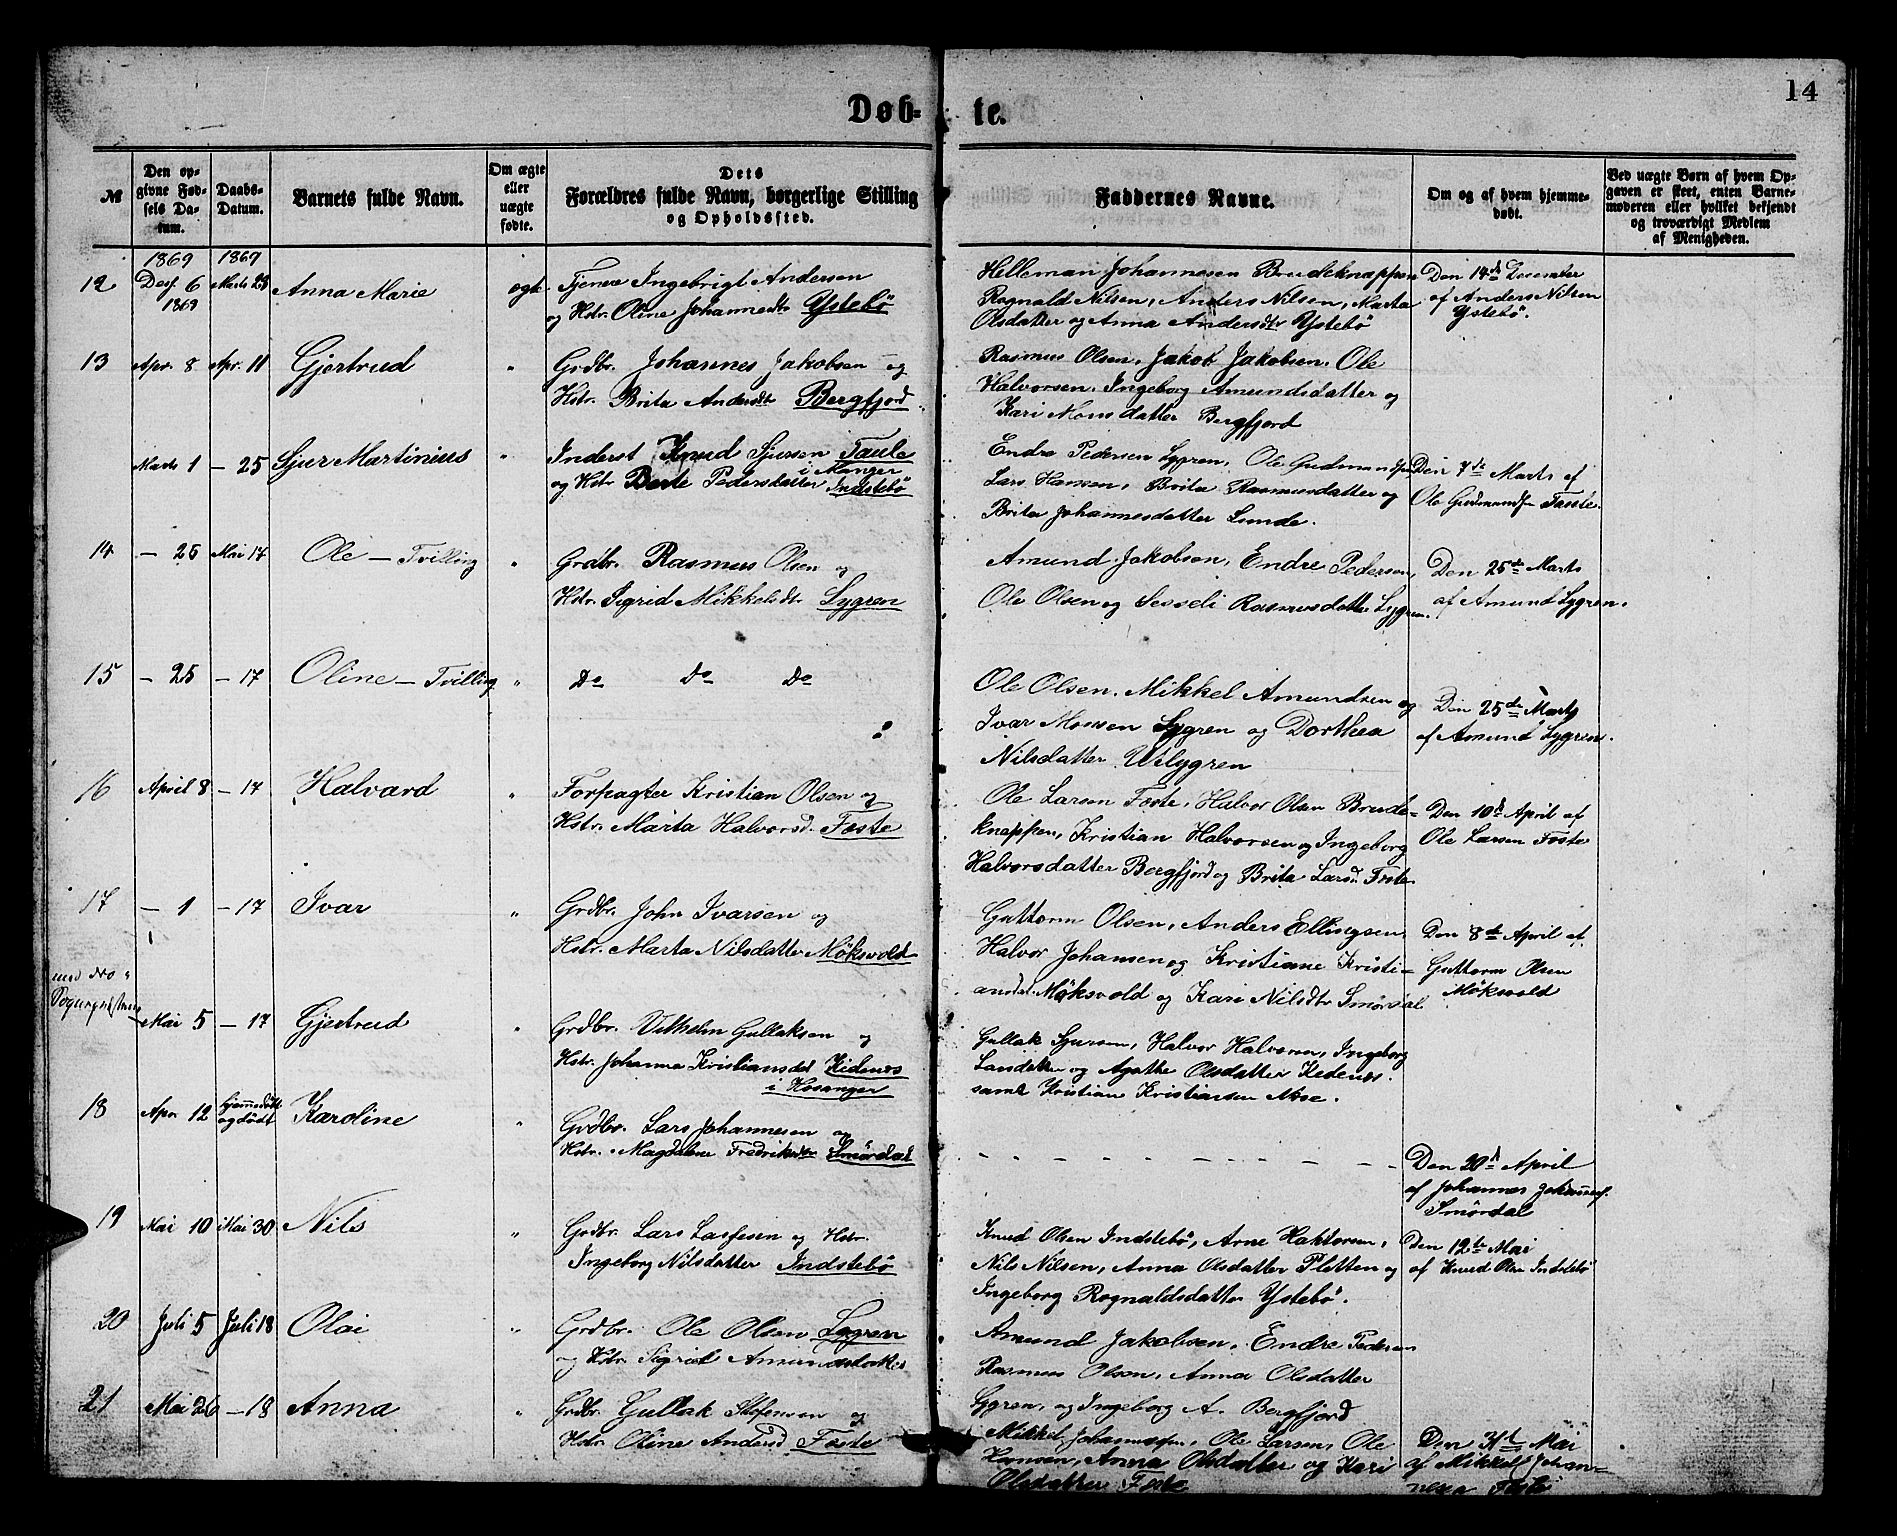 14
Døb-
te.
№
Den opgivne Fødsels Datum.
Daabs-Datum.
Barnets fulde Navn.
Om ægte eller uægte fødte.
Dets
Forældres fulde Navn, borgerlige Stilling
og Opholdssted.
Faddernes Navne.
Om og af hvem hjemmedøbt.
Ved uægte Børn af hvem Opgaven er skeet, enten Barnemoderen eller hvilket bekjendt og troværdigt Medlem af Menigheden.
1869 1869
12 6 Marts 29 Anna Marie ægte
1869
Tjener Ingebrigt Andersen
og Hstr. Oline Johannesdtr Ystebö
Helleman Johannesen Brudeknappen
Rognald Nilsen, Anders Nilsen, Marta
Olsdatter og Anna Andersdtr Ystebö
Den 14de December
af Anders Nilsen
Ystebö.
13 Apr. 8 Apr. 11 Gjertrud "
Grdbr. Johannes Jakobsen og
Hstr. Brita Andersdtr Bergfjord.
Rasmus Olsen, Jakob Jakobsen. Ole
Halvorsen. Ingeborg Amundsdatter og
Kari Monsdatter Bergfjord
Marts 1 – 25 Sjur Martinius "
Inderst Knud Sjursen Taule
i Manger
og Hstr Pedersdatter Indstebö
Endre Pedersen Lygren, Ole
Lars Hansen, Brita Rasmusdatter og
Brita Johannesdatter Lunde.
Den 7de Marts af
Ole
14 – 25 Mai 17 Ole – Tvilling "
Grdbr. Rasmus Olsen og
Hstr. Sigrid Mikkelsdtr Lygren
Amund Jakobsen, Endre Pedersen,
Ole Olsen og Sesseli Rasmusdatter Lygren.
Den 25de Marts
af Amund Lygren.
15 – 25 – 17 Oline – Tvilling "
Do Do Do
Ole Olsen. Mikkel Amundsen og
Ivar Monsen Lygren og Dorthea
Nilsdatter Utlygren
Den 25de Marts
af Amund Lygren.
16 April 8 – 17 Halvard "
Forpagter Kristian Olsen og
Hstr. Marta Halvorsd. Foste
Ole Larsen Foste, Halvor Olsen Brude-
knappen, Kristian Halvorsen og Ingeborg
Halvorsdatter Bergfjord og Brita Larsd. Foste
Den 10de April af
Ole Larsen Foste
17 – 1 – 17 Ivar "
Grdbr. John Ivarsen og
Hstr. Marta Nilsdatter Möksvold
Guttorm Olsen, Anders Ellingsen
Halvor Johansen og Kristiane Kristi-
andtr. Möksvold og Kari Nilsdtr Smördal
Den 8de April af
Guttorm Olsen
Möksvold
Mai 5 – 17 Gjertrud "
Grdbr. Vilhelm Gullaksen og
Hstr. Johanna Kristiansdtr Kidenes
i Hosanger
Gullak Sjursen, Halvor Halvorsen, Ingeborg
og Agathe Olsdatter Kedenes.
samt Kristian Kristiansen
18 Apr 12 hjemmedöbt
og död Karoline "
Grdbr. Lars Johannesen og
Hstr. Magdalene Fredriksdtr Smördal
Den 20de April
af Johannes
Smördal
19 Mai 10 Mai 30 Nils "
Grdbr. Lars og Hstr.
Ingeborg Nilsdatter Indstebö
Knud Olsen Indstebö, Arne Haktorsen,
Nils Nilsen, Anna Olsdatter Pletten og
Ingeborg Rognaldsdatter Ystebö.
Den 12te Mai
af Knud Olsen Indstebö
20 Juli 5 Juli 18 Olai "
Grdbr. Ole Olsen Lygren
og Hstr. Sigrid Amundsdatter
Amund Jakobsen. Endre Pedersen
Rasmus Olsen, Anna Olsdatter
Lygren, og Ingeborg A. Bergfjord
21 Mai 26 – 18 Anna "
Grdbr. Gullak og
Hstr. Oline Andersd Foste
Mikkel Ole Larsen, Ole
Hansen, Anna Olsdatter og Kari
Olsdatter Foste
Den Mai
af Mikkel Johan-
nesen Foste